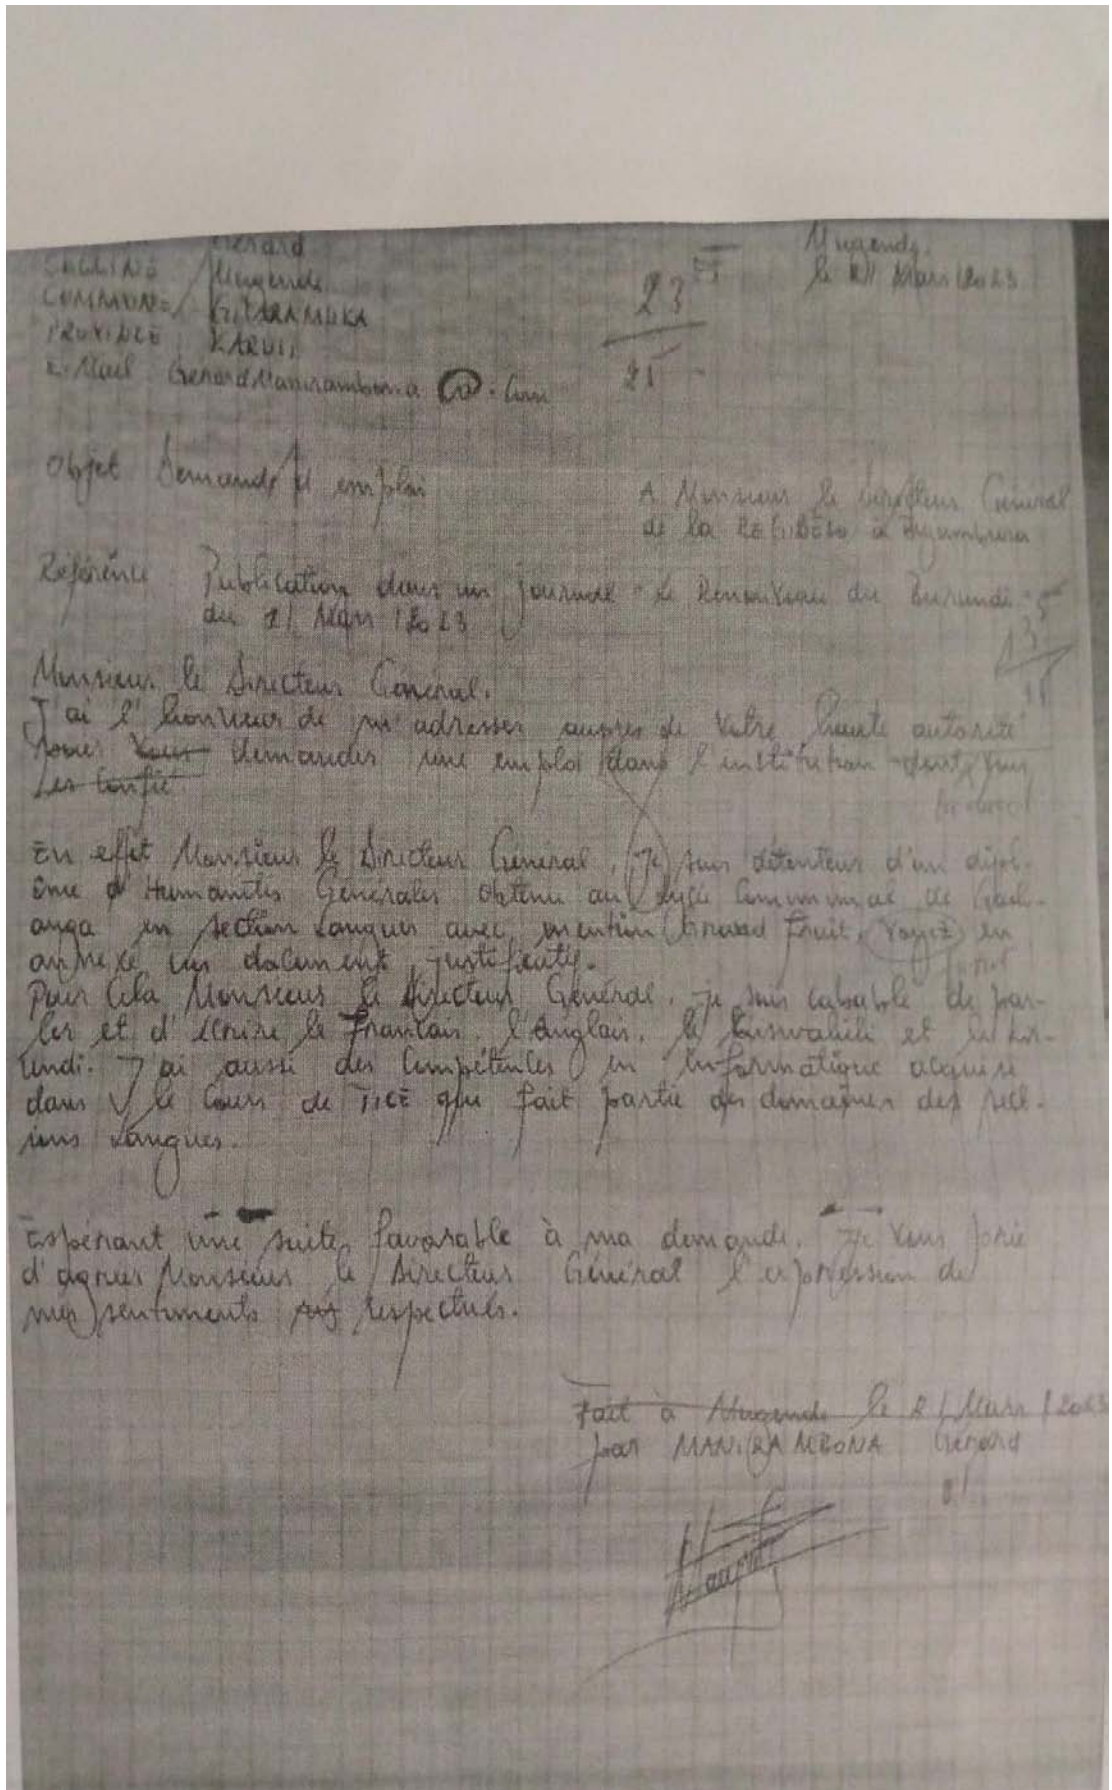 Gérard
COLLINE Mugende
COMMUNE GITARAMUKA
PROVINCE KARUSI
Mugende,
le 21 Mars 2023
23
25
Objet Demande d'emploi
A Monsieur le Directeur Général
de la REGIDESO à Bujumbura
Référence : Publication dans un journal "Le Renouveau du Burundi"
du 21 Mars 2023
Monsieur le Directeur Général,
J'ai l'honneur de m'adresser auprès de votre haute autorité
pour vous demander une emploi dans l'institution dont vous
les confié
En effet Monsieur le Directeur Général, je suis détenteur d'un dipl-
ôme d'Humanités Générales obtenu au Lycée Communal de
anga en section Langues avec mention Grand Fruit. Voyez en
annexe un document justificatif.
Pour cela Monsieur le Directeur Général, je suis cabable de par-
ler et d'écrire le Français, l'Anglais, le kiswahili et le kir-
undi. J'ai aussi des compétences en informatique acquise
dans le cours de TICE qui fait partie des domaines des sect-
ions Langues.
Espérant une suite favorable à ma demande, je vous prie
d'agréer Monsieur le Directeur Général l'expression de
mes sentiments respectués.
Fait à Mugende le 21 Mars 2023
par MANIRAMBONA Gérard